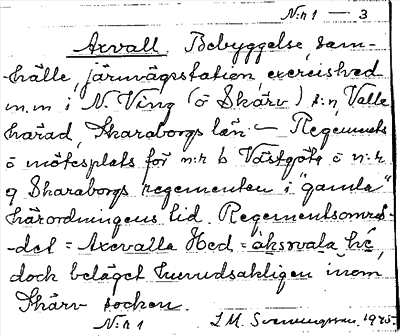 N:r 1 — 3
Axvall. Bebyggelse, sam-
-hälle, järnvägsstation, exercished
m.m i N. Ving (o Skärv) s:n, Valle
härad, Skaraborgs län — Regements
o mötesplats för n:r 6 Västgöta o n:r
9 Skaraborgs regementen i "gamla"
härordningens tid. Regementsområ-
-det = Axevalla Hed = aksvala he,
dock beläget huvudsakligen inom
Skärv socken.
N:r 1 L M. Svenungsson 1975